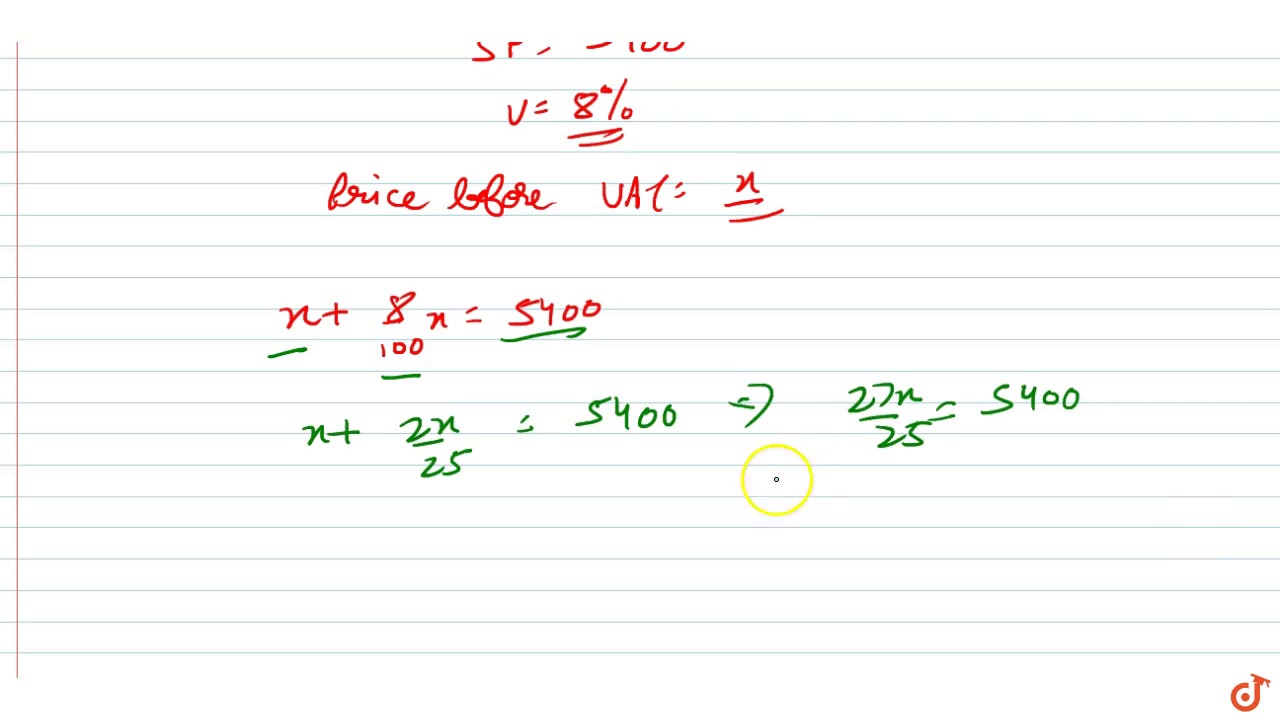 V = 8%
Price before VAT = x
x + 8/100 x = 5400
x + 2x/25 = 5400 => 27x/25 = 5400